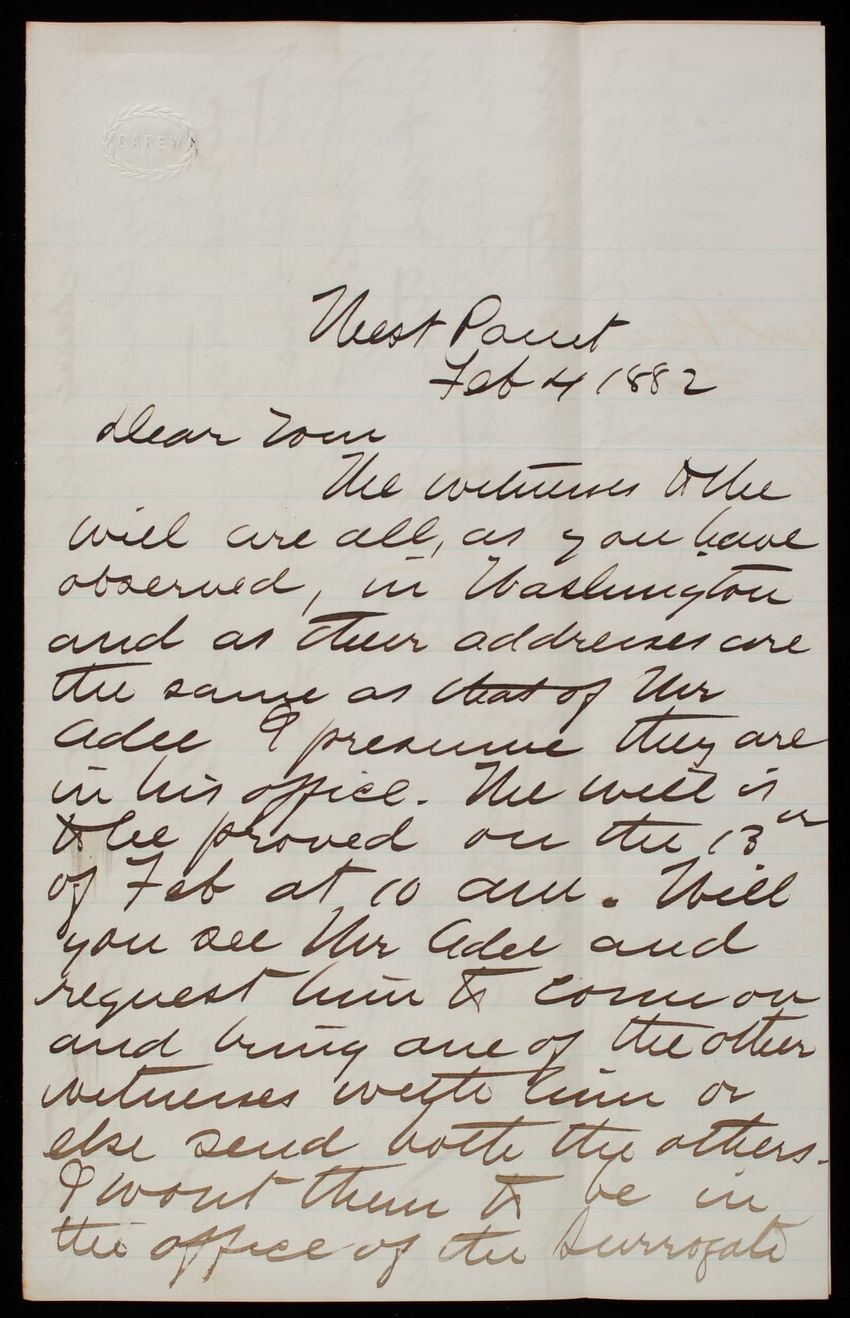 CAREW
West Point
Feb 4 1882
Dear Tom
The witnesses to the
will are all, as you have
observed, in Washington
and as their addresses are
the same as that of Mr
Adee I presume they are
in his office. The will is
to be proved on the 13th
of Feb at 10 am. Will
you see Mr Adee and
request him to come on
and bring one of the other
witnesses with him or
else send both the others.
I want them to be in
the office of the Surrogate